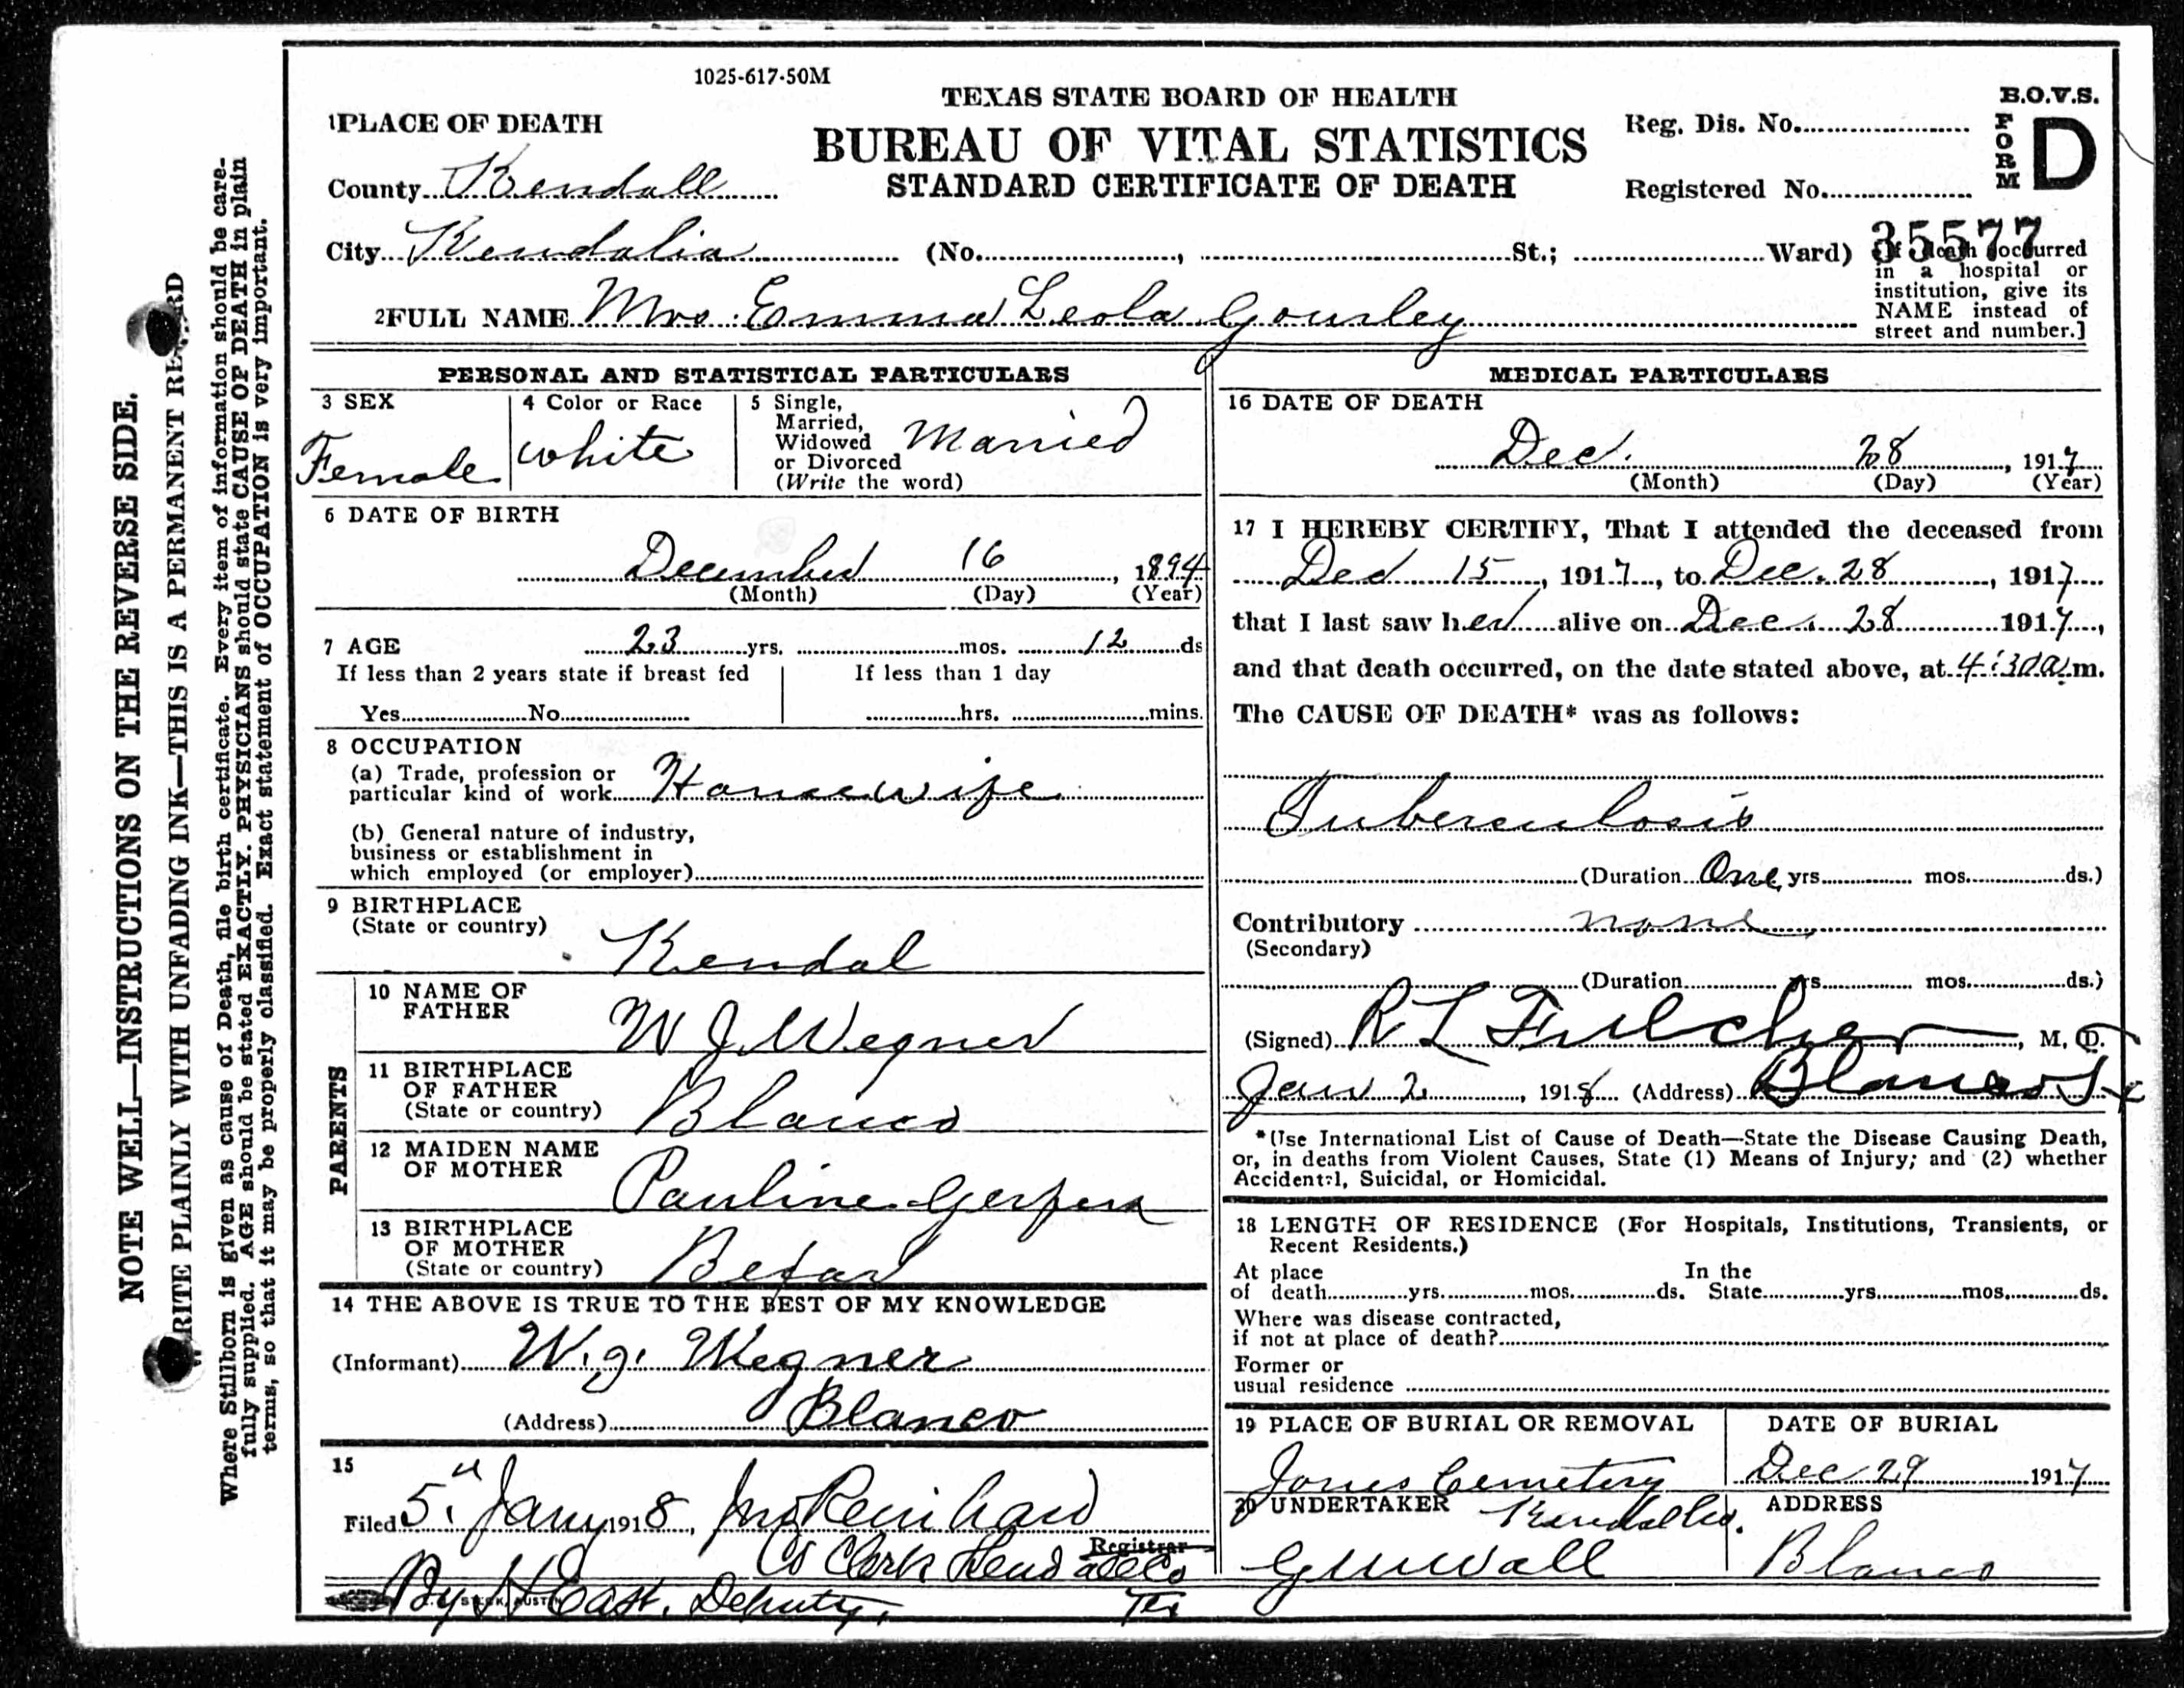 1025-617-50M
TEXAS STATE BOARD OF HEALTH
BUREAU OF VITAL STATISTICS
STANDARD CERTIFICATE OF DEATH
B.O.V.S.
FORM D
Reg. Dis. No.
Registered No.
35577
1 PLACE OF DEATH
County Kendall
City Kendalia (No. , St.; Ward)
[If death occurred
in a hospital or
institution, give its
NAME instead of
street and number.]
2 FULL NAME Mrs. Emma Leola Gourley
PERSONAL AND STATISTICAL PARTICULARS
3 SEX
Female
4 Color or Race
white
5 Single,
Married,
Widowed
or Divorced
(Write the word)
Married
6 DATE OF BIRTH
December 16, 1894
(Month) (Day) (Year)
7 AGE 23 yrs. mos. 12 ds
If less than 2 years state if breast fed
Yes No
If less than 1 day
hrs. mins.
8 OCCUPATION
(a) Trade, profession or
particular kind of work Housewife
(b) General nature of industry,
business or establishment in
which employed (or employer)
9 BIRTHPLACE
(State or country)
Kendal
PARENTS
10 NAME OF
FATHER
W J. Wegner
11 BIRTHPLACE
OF FATHER
(State or country)
Blanco
12 MAIDEN NAME
OF MOTHER
Pauline
13 BIRTHPLACE
OF MOTHER
(State or country)
Bexar
14 THE ABOVE IS TRUE TO THE BEST OF MY KNOWLEDGE
(Informant) W. J. Wegner
(Address) Blanco
15
Filed 5" Jany 1918, Jno Reinhard
Registrar
Co Clerk Kendall Co
By H East, Deputy, Tex
MEDICAL PARTICULARS
16 DATE OF DEATH
Dec. 28, 1917
(Month) (Day) (Year)
17 I HEREBY CERTIFY, That I attended the deceased from
Dec 15, 1917, to Dec. 28, 1917
that I last saw her alive on Dec. 28 1917,
and that death occurred, on the date stated above, at 4:30 a.m.
The CAUSE OF DEATH* was as follows:
Tuberculosis
(Duration One yrs. mos. ds.)
Contributory none
(Secondary)
(Duration yrs. mos. ds.)
(Signed) R L Fulcher, M. D.
Jan 2, 1918 (Address) Blanco Tx
*(Use International List of Cause of Death—State the Disease Causing Death,
or, in deaths from Violent Causes, State (1) Means of Injury; and (2) whether
Accidental, Suicidal, or Homicidal.
18 LENGTH OF RESIDENCE (For Hospitals, Institutions, Transients, or
Recent Residents.)
At place In the
of death yrs. mos. ds. State yrs. mos. ds.
Where was disease contracted,
if not at place of death?
Former or
usual residence
19 PLACE OF BURIAL OR REMOVAL
Jones Cemetery
Kendalia.
DATE OF BURIAL
Dec 29 1917
20 UNDERTAKER
ADDRESS
Blanco
NOTE WELL—INSTRUCTIONS ON THE REVERSE SIDE.
WRITE PLAINLY WITH UNFADING INK—THIS IS A PERMANENT RECORD
Where Stillborn is given as cause of Death, file birth certificate. Every item of information should be care-
fully supplied. AGE should be stated EXACTLY. PHYSICIANS should state CAUSE OF DEATH in plain
terms, so that it may be properly classified. Exact statement of OCCUPATION is very important.